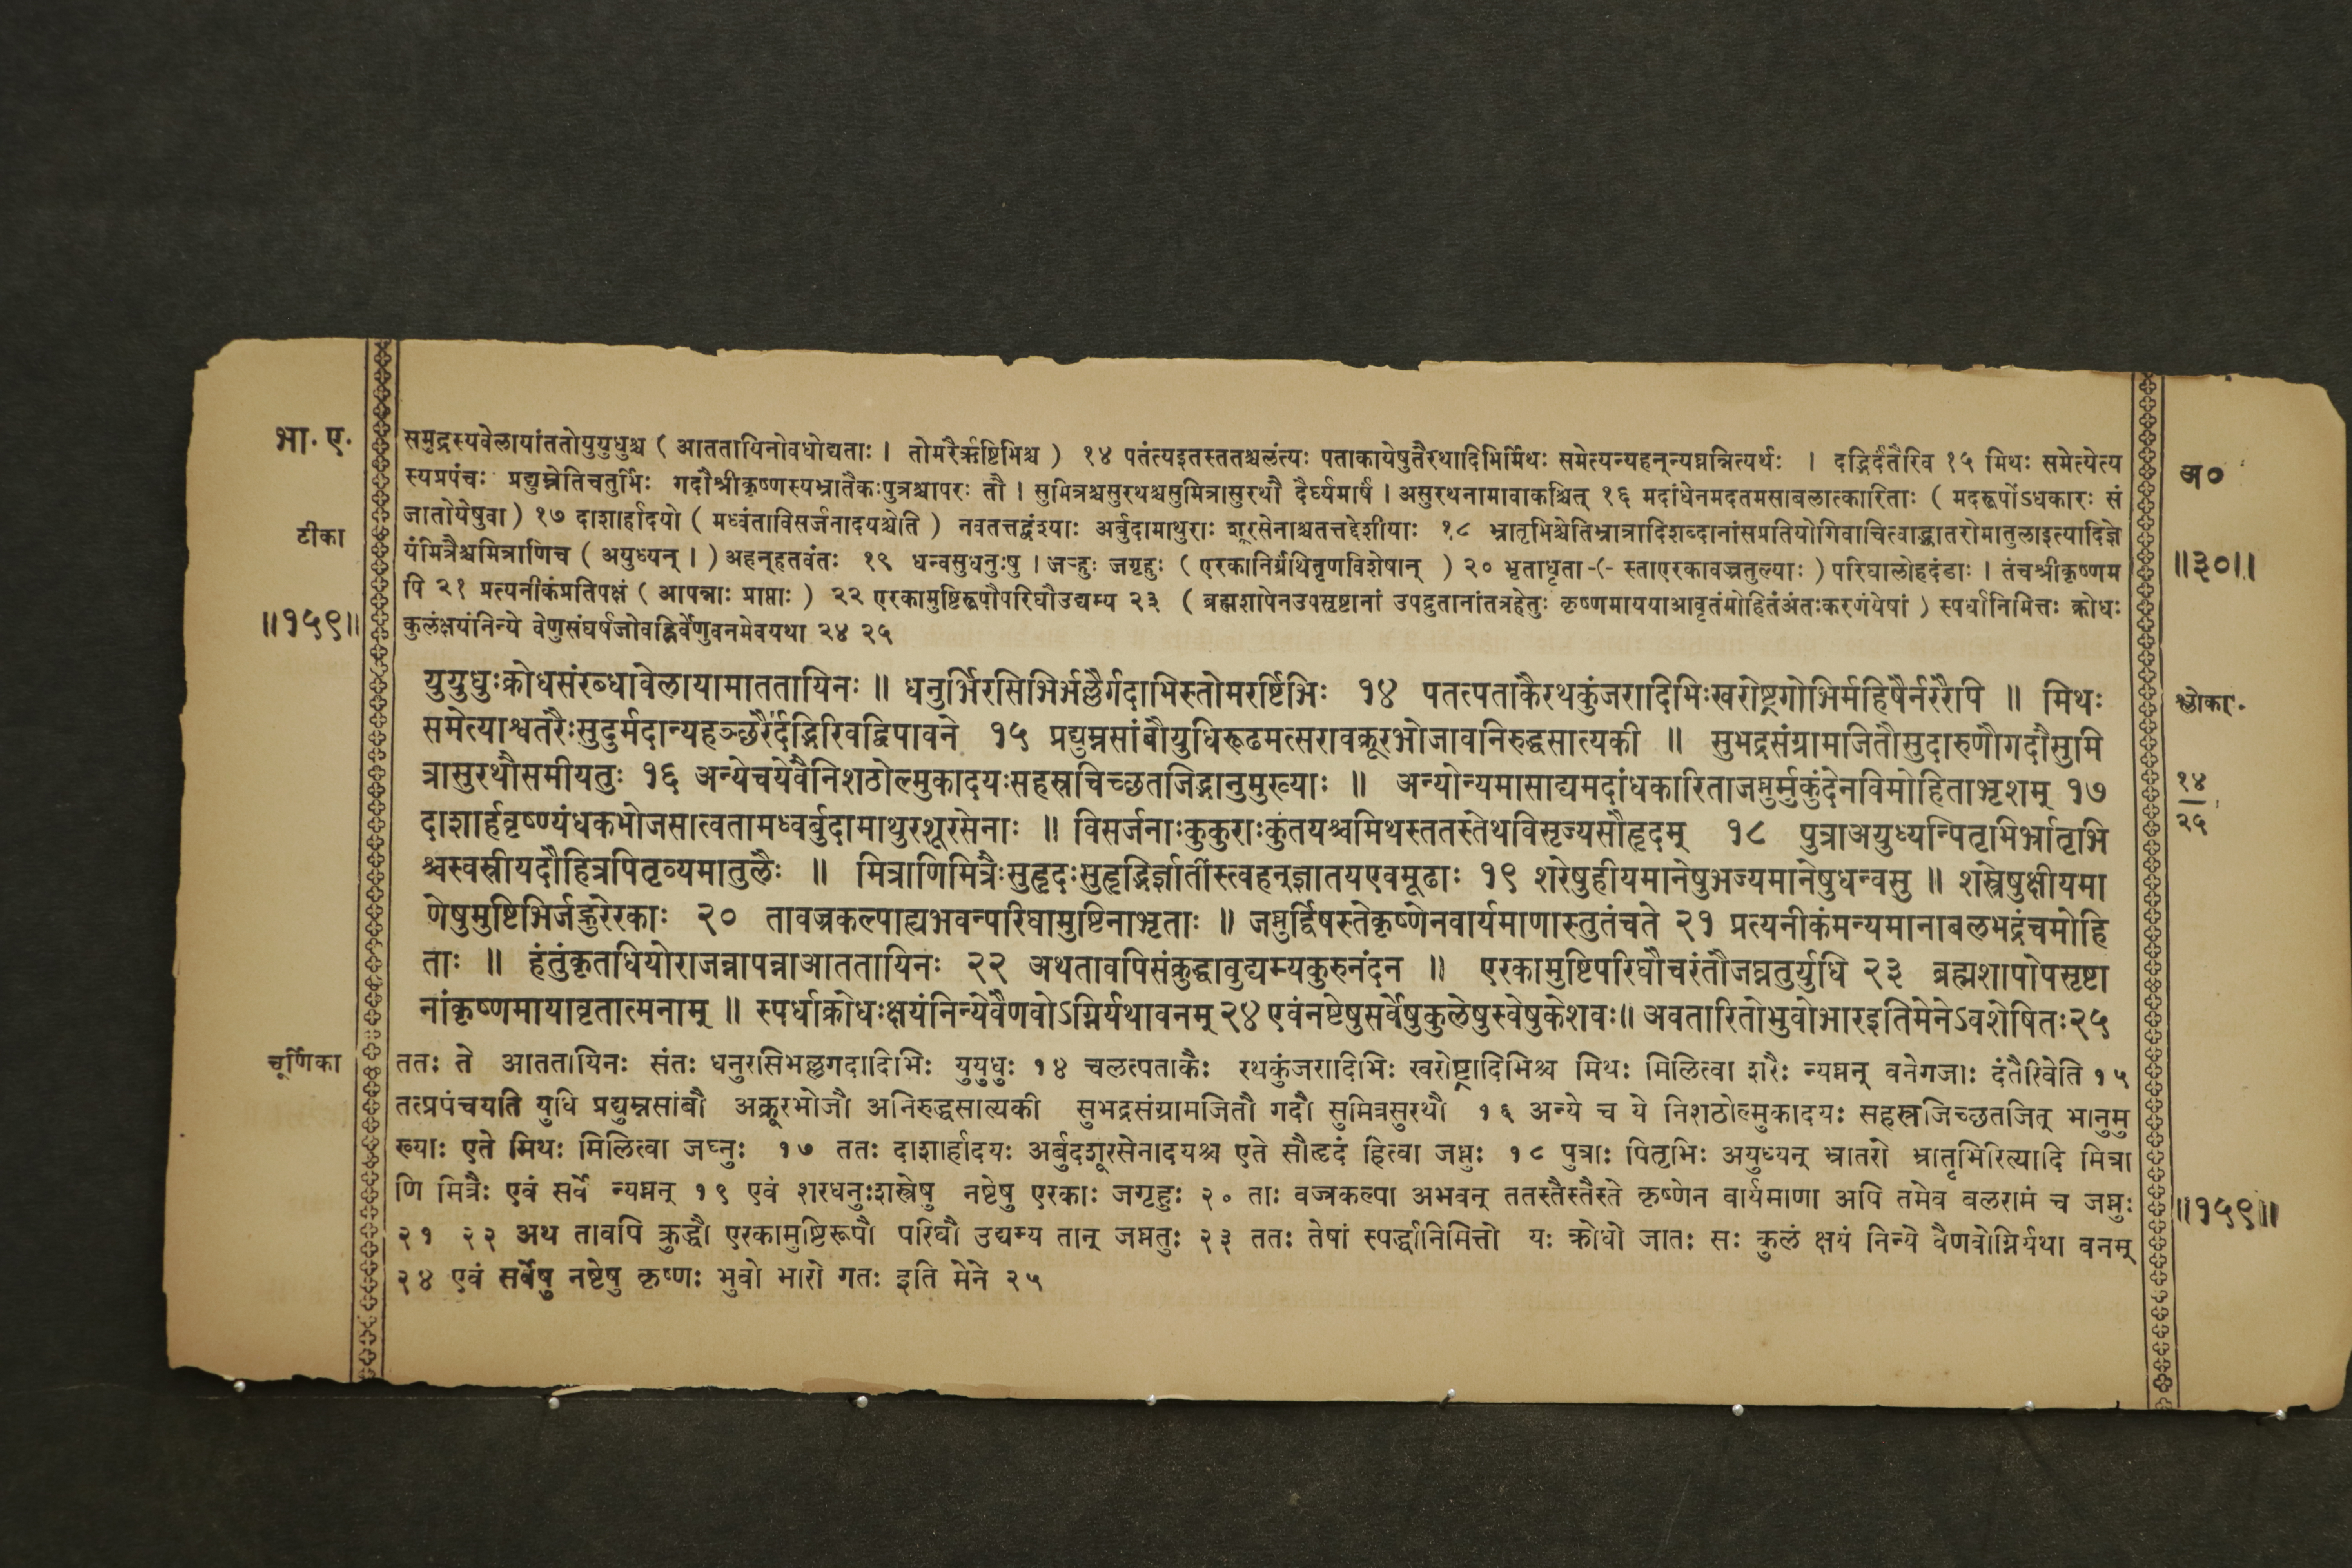 भा. ए.
अ०
समुद्रस्यवेलायांततोयुयुधुश्च ( आततायिनोवधोद्यताः । तोमरैर्ऋष्टिभिश्च ) १४ पतंत्यइतस्ततश्चलंत्यः पताकायेषुतैरथादिभिर्मिथः समेत्यन्यहनन्न्यघ्नन्नित्यर्थः । दद्भिर्दंतैरिव १५ मिथः समेत्येत्य
स्यप्रपंचः प्रद्युम्नेतिचतुर्भिः गदौश्रीकृष्णस्यभ्रातैकःपुत्रश्चापरः तौ । सुमित्रश्चसुरथश्चसुमित्रासुरथौ दैर्घ्यमार्षं । असुरथनामावाकश्चित् १६ मदांधेनमदतमसाबलात्कारिताः ( मदरूपोंऽधकारः सं
जातोयेषुवा ) १७ दाशार्हादयो ( मध्वंताविसर्जनादयश्चेति ) नवतत्तद्वंश्याः अर्बुदामाथुराः शूरसेनाश्चतत्तद्देशीयाः १८ भ्रातृभिश्चेतिभ्रात्रादिशब्दानांसप्रतियोगिवाचित्वाद्भ्रातरोमातुलाइत्यादिज्ञे
टीका
यंमित्रैश्चमित्राणिच ( अयुध्यन् । ) अहन्हतवंतः १९ धन्वसुधनुःषु । जऱ्हुः जगृहुः ( एरकानिर्ग्रंथितृणविशेषान् ) २० भृताधृता -(- स्ताएरकावज्रतुल्याः ) परिघालोहदंडाः । तंचश्रीकृष्णम
॥३०॥
पि २१ प्रत्यनीकंप्रतिपक्षं ( आपन्नाः प्राप्ताः ) २२ एरकामुष्टिरूपौपरिघौउद्यम्य २३ ( ब्रह्मशापेनउपसृष्टानां उपद्रुतानांतत्रहेतुः कृष्णमाययाआवृतंमोहितंअंतःकरणंयेषां ) स्पर्धानिमित्तः क्रोधः
॥१५९॥
कुलंक्षयंनिन्ये वेणुसंघर्षजोवह्निर्वेणुवनमेवयथा २४ २५
युयुधुःक्रोधसंरब्धावेलायामाततायिनः ॥ धनुर्भिरसिभिर्भल्लैर्गदाभिस्तोमरर्ष्टिभिः १४ पतत्पताकैरथकुंजरादिभिःखरोष्ट्रगोभिर्महिषैर्नरैरपि ॥ मिथः
श्लोकाः.
समेत्याश्वतरैःसुदुर्मदान्यहञ्छरैर्दद्भिरिवद्विपावने १५ प्रद्युम्नसांबौयुधिरूढमत्सरावक्रूरभोजावनिरुद्धसात्यकी ॥ सुभद्रसंग्रामजितौसुदारुणौगदौसुमि
त्रासुरथौसमीयतुः १६ अन्येचयेवैनिशठोल्मुकादयःसहस्रचिच्छतजिद्भानुमुख्याः ॥ अन्योन्यमासाद्यमदांधकारिताजघ्नुर्मुकुंदेनविमोहिताभृशम् १७
१४
२५
दाशार्हवृष्ण्यंधकभोजसात्वतामध्वर्बुदामाथुरशूरसेनाः ॥ विसर्जनाःकुकुराःकुंतयश्चमिथस्ततस्तेथविसृज्यसौहृदम् १८ पुत्राअयुध्यन्पितृभिर्भ्रातृभि
श्चस्वस्रीयदौहित्रपितृव्यमातुलैः ॥ मित्राणिमित्रैःसुहृदःसुहृद्भिर्ज्ञातींस्त्वहन्ज्ञातयएवमूढाः १९ शरेषुहीयमानेषुभज्यमानेषुधन्वसु ॥ शस्त्रेषुक्षीयमा
णेषुमुष्टिभिर्जह्रुरेरकाः २० तावज्रकल्पाह्यभवन्परिघामुष्टिनाभृताः ॥ जघ्नुर्द्विषस्तेकृष्णेनवार्यमाणास्तुतंचते २१ प्रत्यनीकंमन्यमानाबलभद्रंचमोहि
ताः ॥ हंतुंकृतधियोराजन्नापन्नाआततायिनः २२ अथतावपिसंक्रुद्धावुद्यम्यकुरुनंदन ॥ एरकामुष्टिपरिघौचरंतौजघ्नतुर्युधि २३ ब्रह्मशापोपसृष्टा
नांकृष्णमायावृतात्मनाम् ॥ स्पर्धाक्रोधःक्षयंनिन्येवैणवोऽग्निर्यथावनम् २४ एवंनष्टेषुसर्वेषुकुलेषुस्वेषुकेशवः॥ अवतारितोभुवोभारइतिमेनेऽवशेषितः२५
चूर्णिका
ततः ते आततायिनः संतः धनुरसिभल्लगदादिभिः युयुधुः १४ चलत्पताकैः रथकुंजरादिभिः खरोष्ट्रादिभिश्च मिथः मिलित्वा शरैः न्यघ्नन् वनेगजाः दंतैरिवेति १५
तत्प्रपंचयति युधि प्रद्युम्नसांबौ अक्रूरभोजौ अनिरुद्धसात्यकी सुभद्रसंग्रामजितौ गदौ सुमित्रसुरथौ १६ अन्ये च ये निशठोल्मुकादयः सहस्रजिच्छतजित् भानुमु
ख्याः एते मिथः मिलित्वा जघ्नुः १७ ततः दाशार्हादयः अर्बुदशूरसेनादयश्च एते सौहृदं हित्वा जघ्नुः १८ पुत्राः पितृभिः अयुध्यन् भ्रातरो भ्रातृभिरित्यादि मित्रा
णि मित्रैः एवं सर्वे न्यघ्नन् १९ एवं शरधनुःशस्त्रेषु नष्टेषु एरकाः जगृहुः २० ताः वज्रकल्पा अभवन् ततस्तैस्तैस्ते कृष्णेन वार्यमाणा अपि तमेव बलरामं च जघ्नुः
॥१५९॥
२१ २२ अथ तावपि क्रुद्धौ एरकामुष्टिरूपौ परिघौ उद्यम्य तान् जघ्नतुः २३ ततः तेषां स्पर्द्धानिमित्तो यः क्रोधो जातः सः कुलं क्षयं निन्ये वैणवोग्निर्यथा वनम्
२४ एवं सर्वेषु नष्टेषु कृष्णः भुवो भारो गतः इति मेने २५